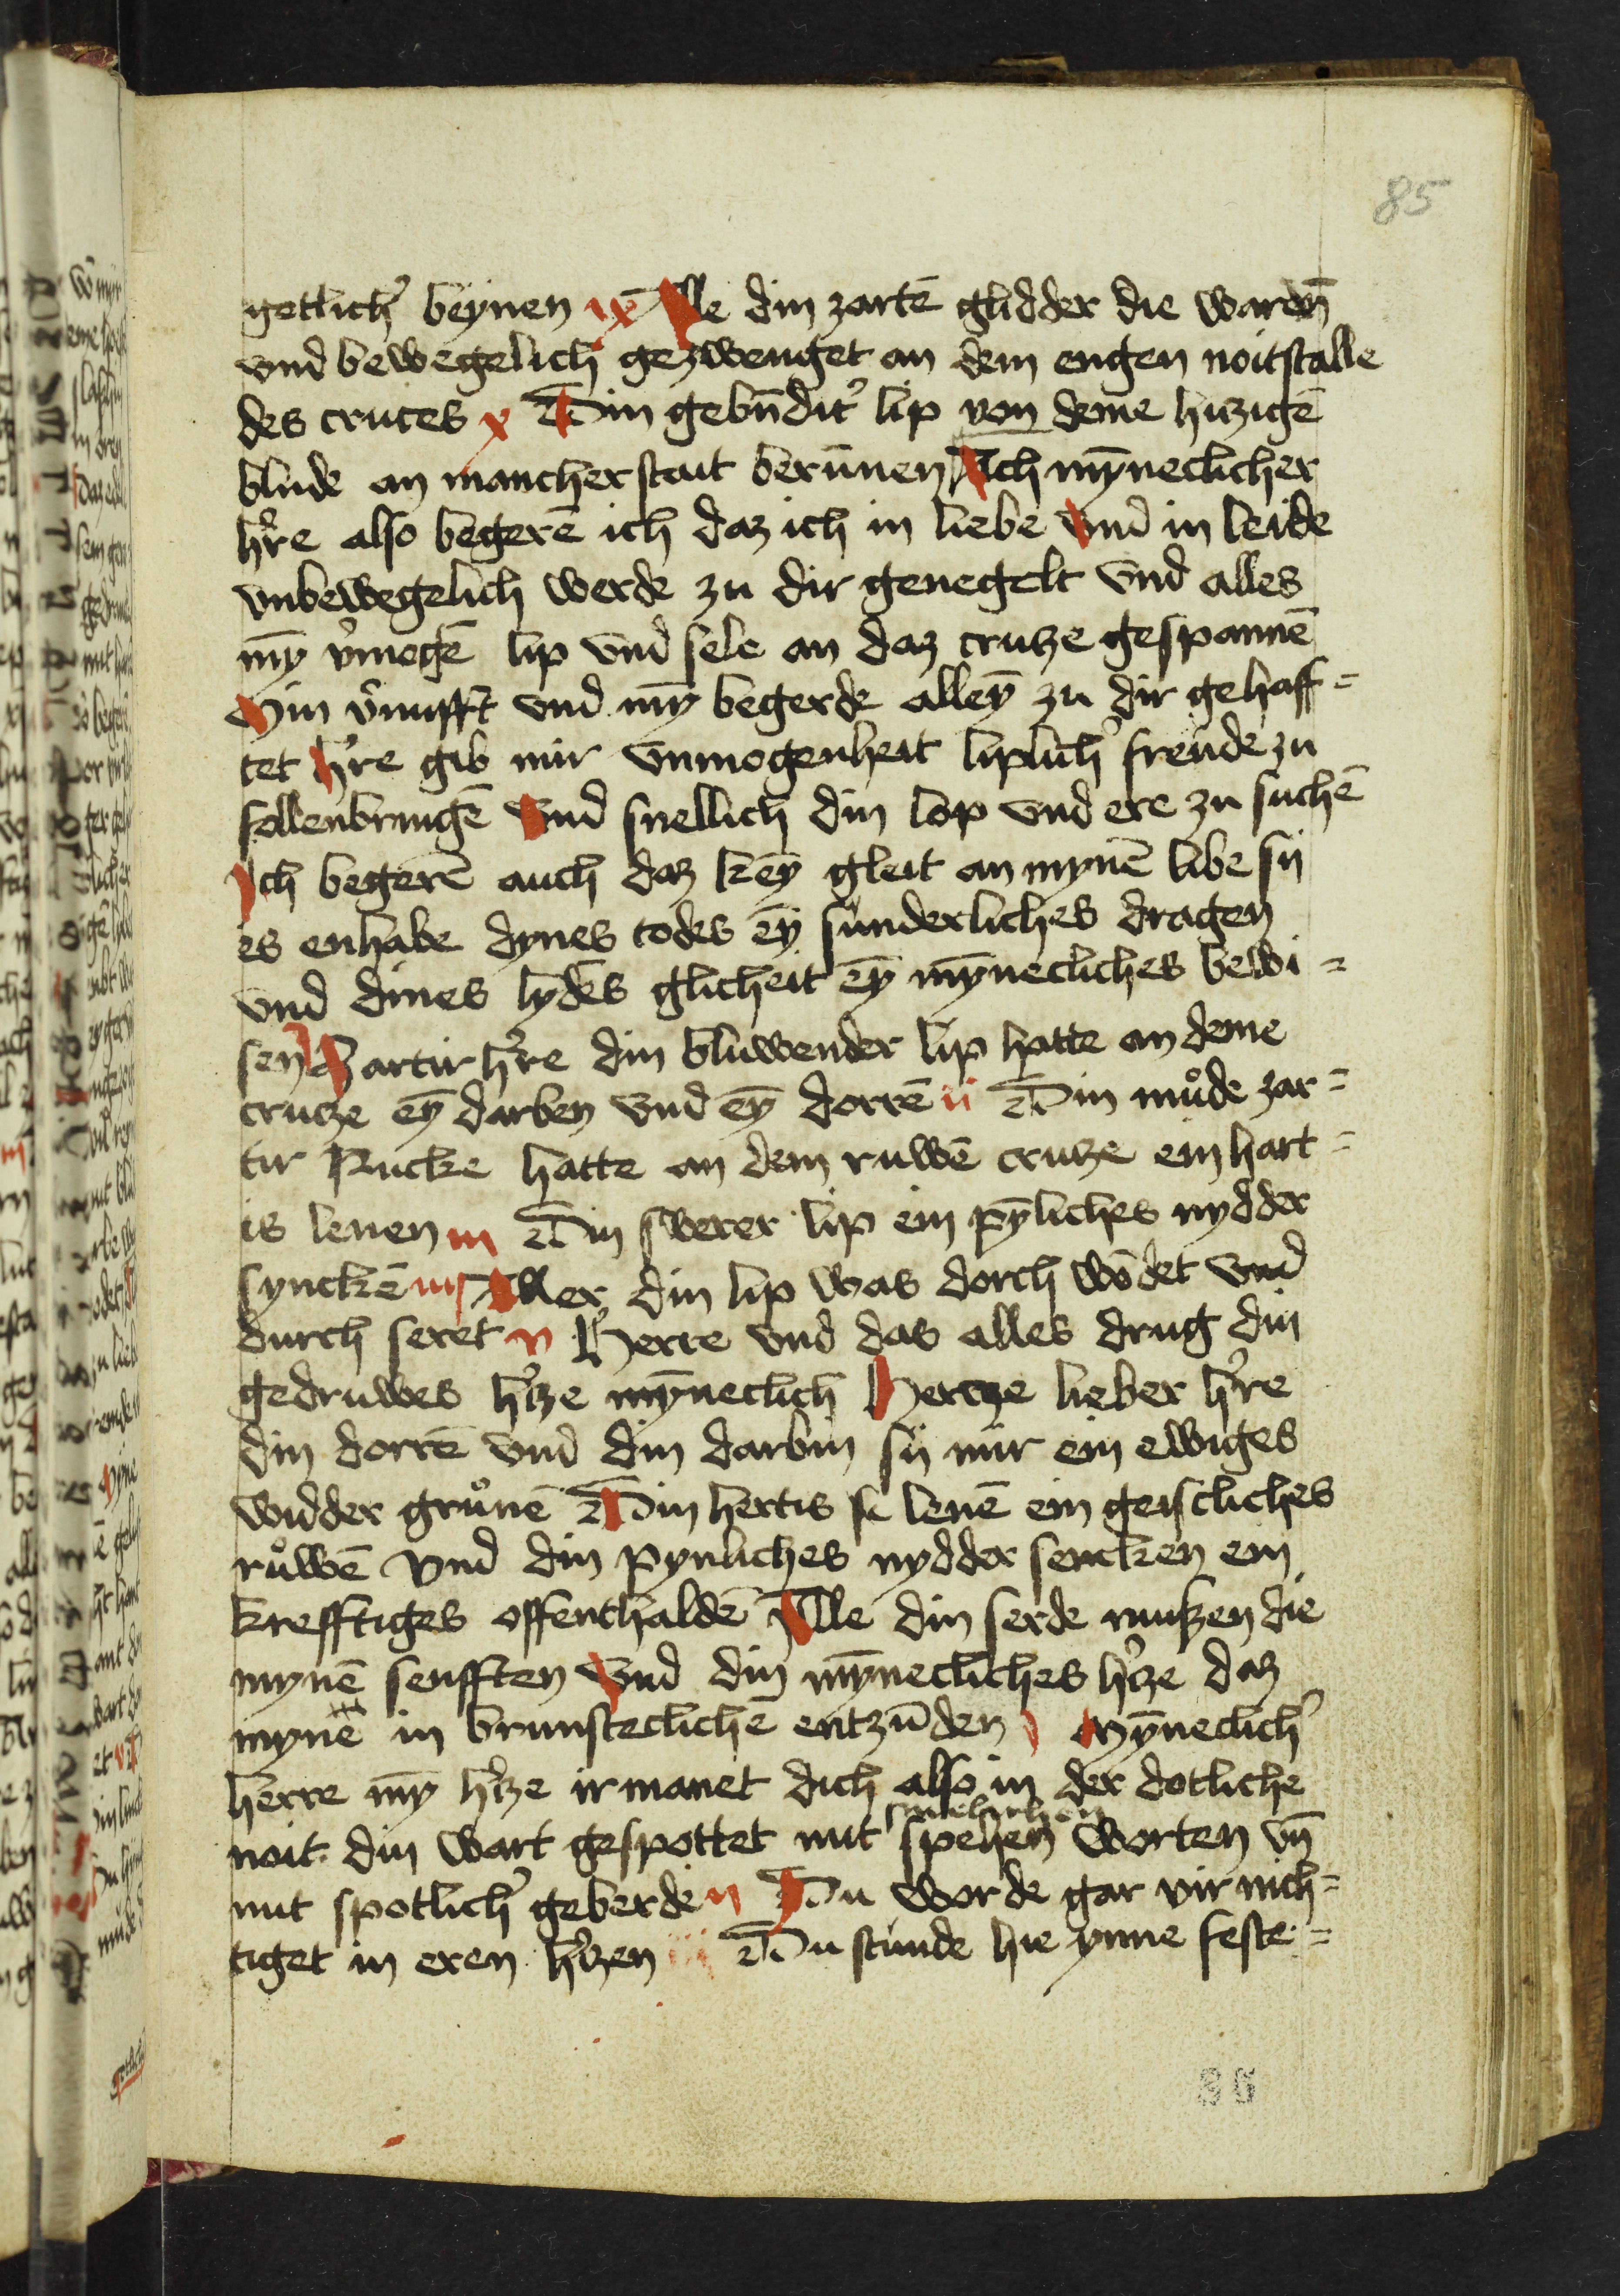 85
getlichʼ beynen ix Alle din zartē glidder die warēn
vnd bewegelich gezwenget an dem engen noitstalle
des cruces x Din gebūditʼ lip von deme hizigē
blude an mancher stait berūnen Ach mȳneclicher
hʼre also begerē ich daz ich in liebe vnd in leide
vnbewegelich werde zu dir genegelt vnd alles
mȳ vʼmogē lip vnd sele an daz crutze gespannē
Min vʼnufft vnd mȳ begerde alleȳ zu dir gehaff=
tet hʼre gib mir vnmogenheit liplichʼ freude zu
follenbrungē vnd snellich din lop vnd ere zu suchē
Ich begerē auch daz keȳ gleit an mynē libe sij
es enhabe dynes todes eȳ sunderliches dragen
vnd dines lydēs glicheit eȳ mȳnecliches bewi=
sen Zartir hʼre din bluwender lip hatte an deme
crutze eȳ darben vnd eȳ dorrē ii Din můde zar=
tir Rucke hatte an dem ruwē crutze ein hart=
is lenen iii Din swerer lip ein pȳliches nydder
synckē iiij Aller din lip was dorch wōdet vnd
durch seret v Herre vnd das alles drug din
gedruwes hʼtze mȳneclich Hertze lieber hʼre
din dorrē vnd din darbin sij mir ein ewiges
widder grůnē Din hertis lenē ein geistliches
růwē vnd din pynliches nydder sencken ein
krefftiges offenthaldē Alle din serde mußen die
mynē senfften vnd din mȳnecliches hʼtze daz
mynē in brunsteclichē entzūden i Mȳneclichʼ
herre mȳ hʼtze irmanet dich also in der dotliche
noit din wart gespottet mit spehen worten vn̄
smelichen
mit spotlichʼ geberde ii Du worde gar vir nich=
tiget in eren hʼtzen iii Du stunde hie ynne feste=
86